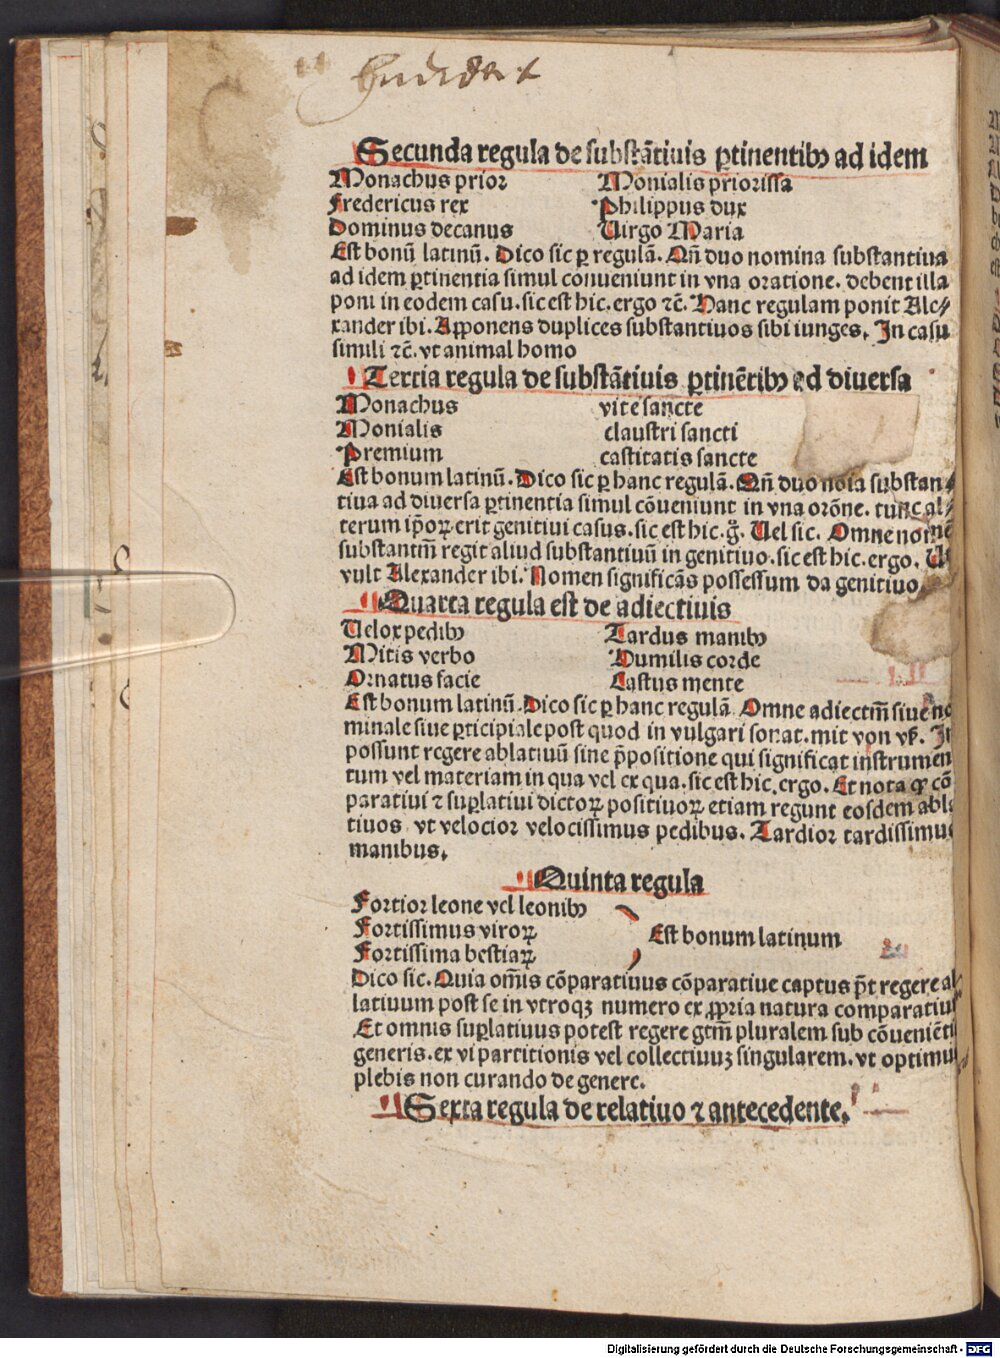 Secunda regula de substātiuis ꝑtinentibꝫ ad idem
Monachus prior Monialis priorissa
Fredericus rex Philippus dux
Dominus decanus Uirgo Maria
Est bonū latinū. Dico sic ꝑ regulā. Qn̄ duo nomina substantiua
ad idem ꝑtinentia simul conueniunt in vna oratione. debent illa
poni in eodem casu. sic est hic. ergo ⁊c̄. Hanc regulam ponit Ale⸗
xander ibi. Apponens duplices substantiuos sibi iunges. In casu
simili ⁊c̄. vt animal homo
Tertia regula de substātiuis ꝑtinētibꝫ ad diuersa
Monachus vite sancte
Monialis claustri sancti
Premium castitatis sancte
Est bonum latinū. Dico sic ꝑ hanc regulā. Qn̄ duo noīa substan⸗
tiua ad diuersa ꝑtinentia simul cōueniunt in vna orōne. tunc al⸗
terum ip̄oꝝ erit genitiui casus. sic est hic. g̊. Uel sic. Omne nomē
substantm̄ regit aliud substantiuū in genitiuo. sic est hic. ergo.
vult Alexander ibi. Nomen significās possessum da genitiuo.
Quarta regula est de adiectiuis
Uelox pedibꝫ Tardus manibꝫ
Mitis verbo Humilis corde
Ornatus facie Castus mente
Est bonum latinū. Dico sic ꝑ hanc regulā Omne adiectm̄ siue no
minale siue ꝑticipiale post quod in vulgari sonat. mit von vf̄.
possunt regere ablatiuū sine p̄positione qui significat instrumen
tum vel materiam in qua vel ex qua. sic est hic. ergo. Et nota ꝙ cō
paratiui ⁊ suꝑlatiui dictoꝝ positiuoꝝ etiam regunt eosdem abla
tiuos vt velocior velocissimus pedibus. Tardior tardissimus
manibus.
Quinta regula
Fortior leone vel leonibꝫ
Fortissimus viroꝝ Est bonum latinum
Fortissima bestiaꝝ
Dico sic. Quia om̄is cōparatiuus cōparatiue captus p̄t regere ab
latiuum post se in vtroqꝫ numero ex ꝓpria natura comparatiui
Et omnis suꝑlatiuus potest regere gtm̄ pluralem sub cōueniēti
generis. ex vi partitionis vel collectiuuꝫ singularem. vt optimus
plebis non curando de genere.
Sexta regula de relatiuo ⁊ antecedente.
Digitalisierung gefördert durch die Deutsche Forschungsgemeinschaft - DFG